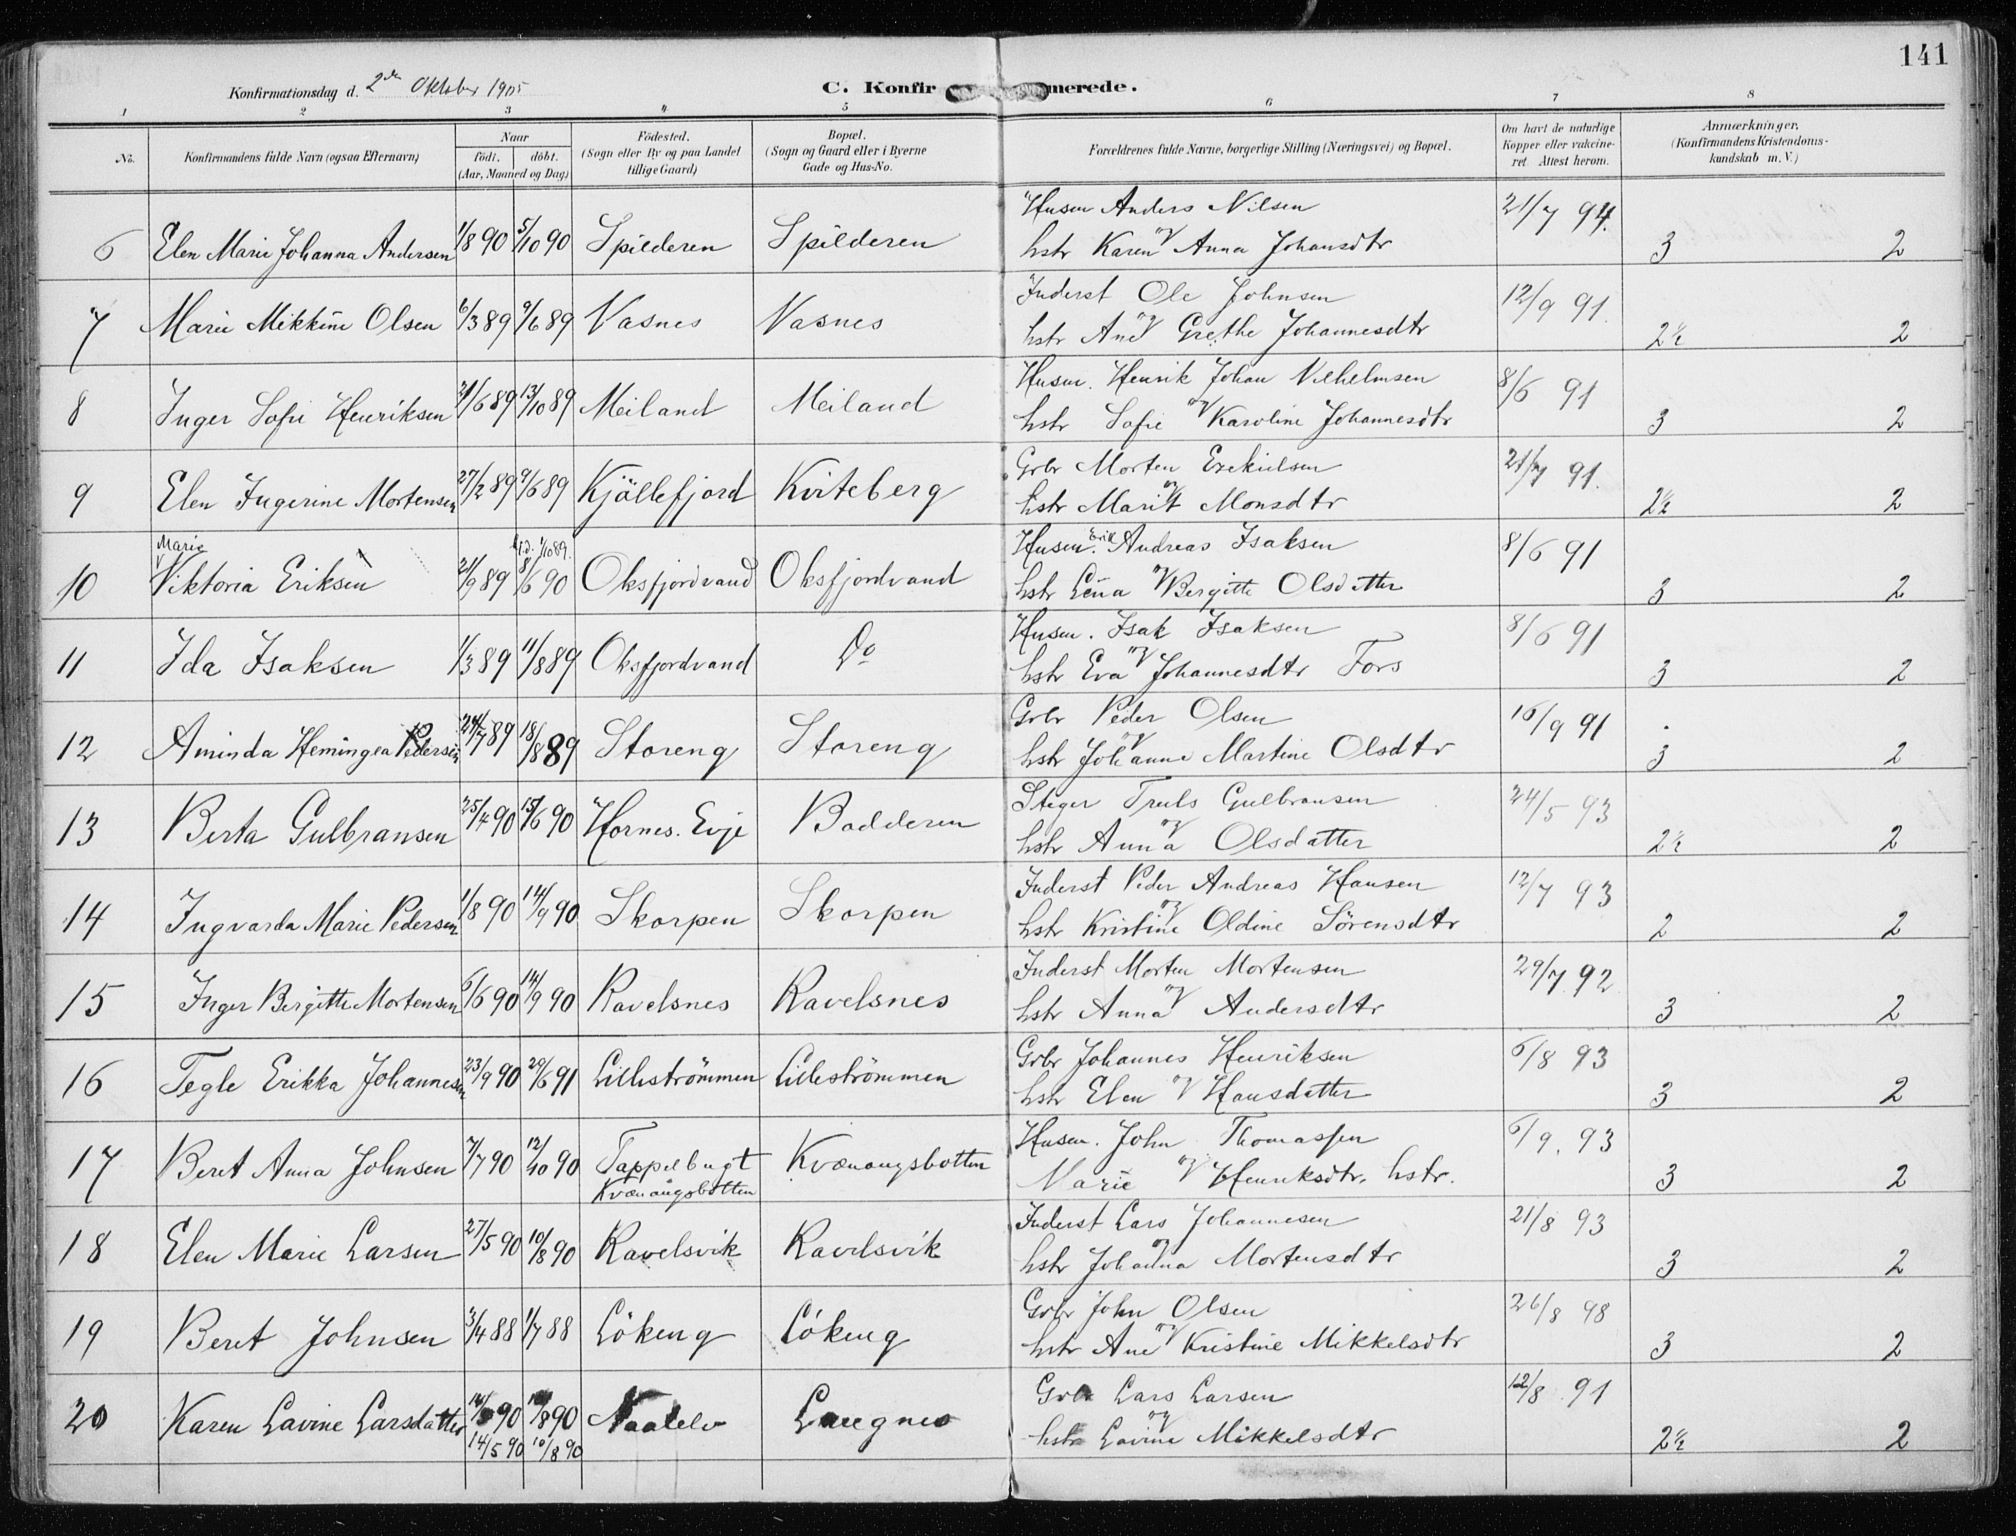 141
Konfirmationsdag d. 2den Oktober 1905
C. Konfir merede.
1 2 3 4 5 6 7 8
No.
Konfirmandens fulde Navn (ogsaa Efternavn)
Naar
födt. döbt.
(Aar, Maaned og Dag)
Födested.
(Sogn eller By og paa Landet
tillige Gaard)
Bopæl.
(Sogn og Gaard eller i Byerne
Gade og Hus-No.
Forældrenes fulde Navne, borgerlige Stilling (Næringsvei) og Bopæl.
Om havt de naturlige
Kopper eller vakcine-
ret. Attest herom.
Anmærkninger.
(Konfirmandens Kristendoms-
kundskab m. V.)
Husm Anders Nilsen 21/7 94.
6 Elen Marie Johanna Andersen 1/8 90 5/10 90 Spilderen Spilderen og hstr Karen Anna Johansdtr 3 2
Inderst Ole Johnsen 12/9 91.
7 Marie Mikkine Olsen 6/3 89 9/6 89 Vasnes Vasnes og hstr Ane Grethe Johannesdtr 2½ 2
Husm. Henrik Johan Vilhelmsen 8/6 91
8 Inger Sofie Henriksen 21/6 89 13/10 89 Meiland Meiland og hstr Sofie Karoline Johannesdtr 3 2
Grbr Morten Ezekielsen 21/7 91.
9 Elen Ingerine Mortensen 27/2 89 9/6 89 Kjöllefjord Kviteberg og hstr Marit Monsdtr 2½ 2
Marie 1/10 89. Husm. Erik Andreas Isaksen 8/6 91
10 Viktoria Eriksen 21/9 89 8/6 90 Oksfjordvand Oksfjordvand og hstr Lena Bergitte Olsdatter 3 2
Husm. Isak Isaksen 8/6 91
11 Ida Isaksen 1/3 89 11/8 89 Oksfjordvand Do og hstr Eva Johannesdtr Fors 3 2
Grbr Peder Olsen 16/9 91
12 Aminda Hemingea Pedersen 24/7 89 18/8 89 Storeng Storeng og hstr Johanne Martine Olsdtr 3 2
Steger Truls Gulbransen 24/5 93
13 Berta Gulbransen 25/4 90 15/6 90 Hornes. Evje Badderen og hstr Anna Olsdatter 2½ 2
Inderst Peder Andreas Hansen 12/7 93
14 Ingvarda Marie Pedersen 1/8 90 14/9 90 Skorpen Skorpen og hstr Kristine Oldine Sörensdtr 2 2
Inderst Morten Mortensen 29/7 92
15 Inger Birgitte Mortensen 6/6 90 14/9 90 Ravelsnes Ravelsnes og hstr Anna Andersdtr 3 2
Grbr Johannes Henriksen 6/8 93
16 Tegle Erikka Johannesen 23/9 90 29/6 91 Lilleströmmen Lilleströmmen og hstr Elen Hansdatter 3 2
Husm. John Thomassen 6/9. 93
17 Beret Anna Johnsen 7/7 90 12/10 90 Tappelbugt Kvænangsbotten og Marie Henriksdtr. hstr. 3 2
Kvænangsbotten
Inderst Lars Johannesen 21/8 93
18 Elen Marie Larsen 27/5 90 10/8 90 Ravelsvik Ravelsvik og hstr Johanna Mortensdtr 3 2
Grbr John Olsen 26/8 98
19 Beret Johnsen 3/4 88 1/7 88 Lökeng Lökeng og hstr Ane Kristine Mikkelsdtr 3 2
Grbr Lars Larsen 12/8 91
20 Karen Lavine Larsdatter 14/5 90 10/8 90 Naalelv Langnes og hstr Lavine Mikkelsdtr 2½ 2
14/5 90 10/8 90